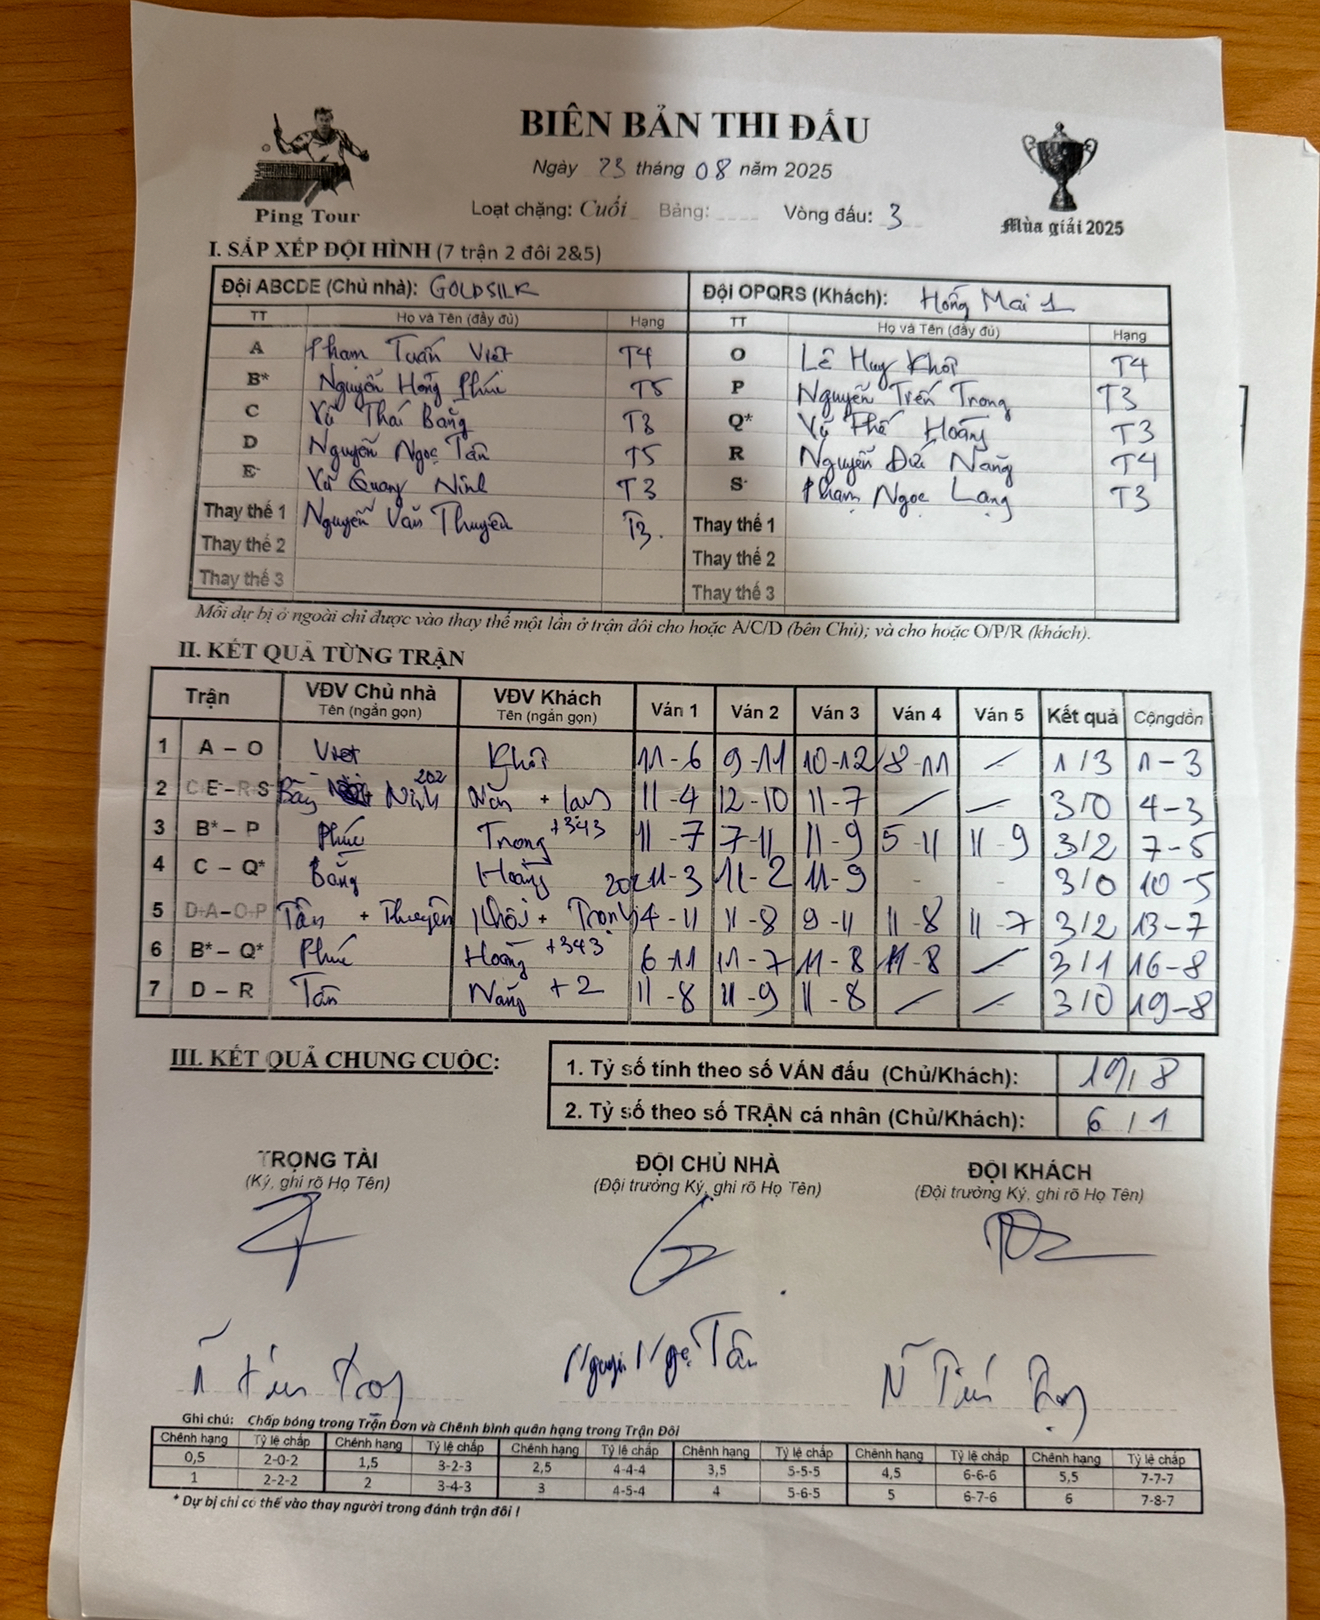 BIÊN BẢN THI ĐẤU
Ngày 23 tháng 08 năm 2025
Ping Tour
Loạt chặng: Cuối Bảng: Vòng đấu: 3
Mùa giải 2025
I. SẮP XẾP ĐỘI HÌNH (7 trận 2 đôi 2&5)
Đội ABCDE (Chủ nhà): GOLDSILK Đội OPQRS (Khách): Hồng Mai 1
TT Họ và Tên (đầy đủ) Hạng TT Họ và Tên (đầy đủ) Hạng
A Phạm Tuấn Việt T4 O Lê Huy Khôi T4
B* Nguyễn Hồng Phúc T5 P Nguyễn Tiến Trọng T3
C Vũ Thái Bằng T3 Q* Vũ Thế Hoàng T3
D Nguyễn Ngọc Tân T5 R Nguyễn Đức Năng T4
E Vũ Quang Ninh T3 S Phạm Ngọc Lạng T3
Thay thế 1 Nguyễn Văn Thuyên T3. Thay thế 1
Thay thế 2 Thay thế 2
Thay thế 3 Thay thế 3
Mỗi dự bị ở ngoài chỉ được vào thay thế một lần ở trận đôi cho hoặc A/C/D (bên Chủ); và cho hoặc O/P/R (khách).
II. KẾT QUẢ TỪNG TRẬN
Trận VĐV Chủ nhà Tên (ngắn gọn) VĐV Khách Tên (ngắn gọn) Ván 1 Ván 2 Ván 3 Ván 4 Ván 5 Kết quả Cộngdồn
1 A – O Việt Khôi 11-6 9-11 10-12 8-11 – 1/3 1-3
2 C+E – R+S Bằng Ninh 202 Năng + Lạng 11-4 12-10 11-7 – – 3/0 4-3
3 B* – P Phúc Trọng +343 11-7 7-11 11-9 5-11 11-9 3/2 7-5
4 C – Q* Bằng Hoàng 202 11-3 11-2 11-9 - - 3/0 10-5
5 D+A – O+P Tân + Thuyên Khôi + Trọng 4-11 11-8 9-11 11-8 11-7 3/2 13-7
6 B* – Q* Phúc Hoàng +343 6-11 11-7 11-8 11-8 – 3/1 16-8
7 D – R Tân Năng +2 11-8 11-9 11-8 – – 3/0 19-8
III. KẾT QUẢ CHUNG CUỘC:
1. Tỷ số tính theo số VÁN đấu (Chủ/Khách): 19/8
2. Tỷ số theo số TRẬN cá nhân (Chủ/Khách): 6/1
TRỌNG TÀI ĐỘI CHỦ NHÀ ĐỘI KHÁCH
(Ký, ghi rõ Họ Tên) (Đội trưởng Ký, ghi rõ Họ Tên) (Đội trưởng Ký, ghi rõ Họ Tên)
N Tiến Trọng Nguyễn Ngọc Tân N Tiến Trọng
Ghi chú: Chấp bóng trong Trận Đơn và Chênh bình quân hạng trong Trận Đôi
Chênh hạng Tỷ lệ chấp Chênh hạng Tỷ lệ chấp Chênh hạng Tỷ lệ chấp Chênh hạng Tỷ lệ chấp Chênh hạng Tỷ lệ chấp Chênh hạng Tỷ lệ chấp
0,5 2-0-2 1,5 3-2-3 2,5 4-4-4 3,5 5-5-5 4,5 6-6-6 5,5 7-7-7
1 2-2-2 2 3-4-3 3 4-5-4 4 5-6-5 5 6-7-6 6 7-8-7
* Dự bị chỉ có thể vào thay người trong đánh trận đôi !